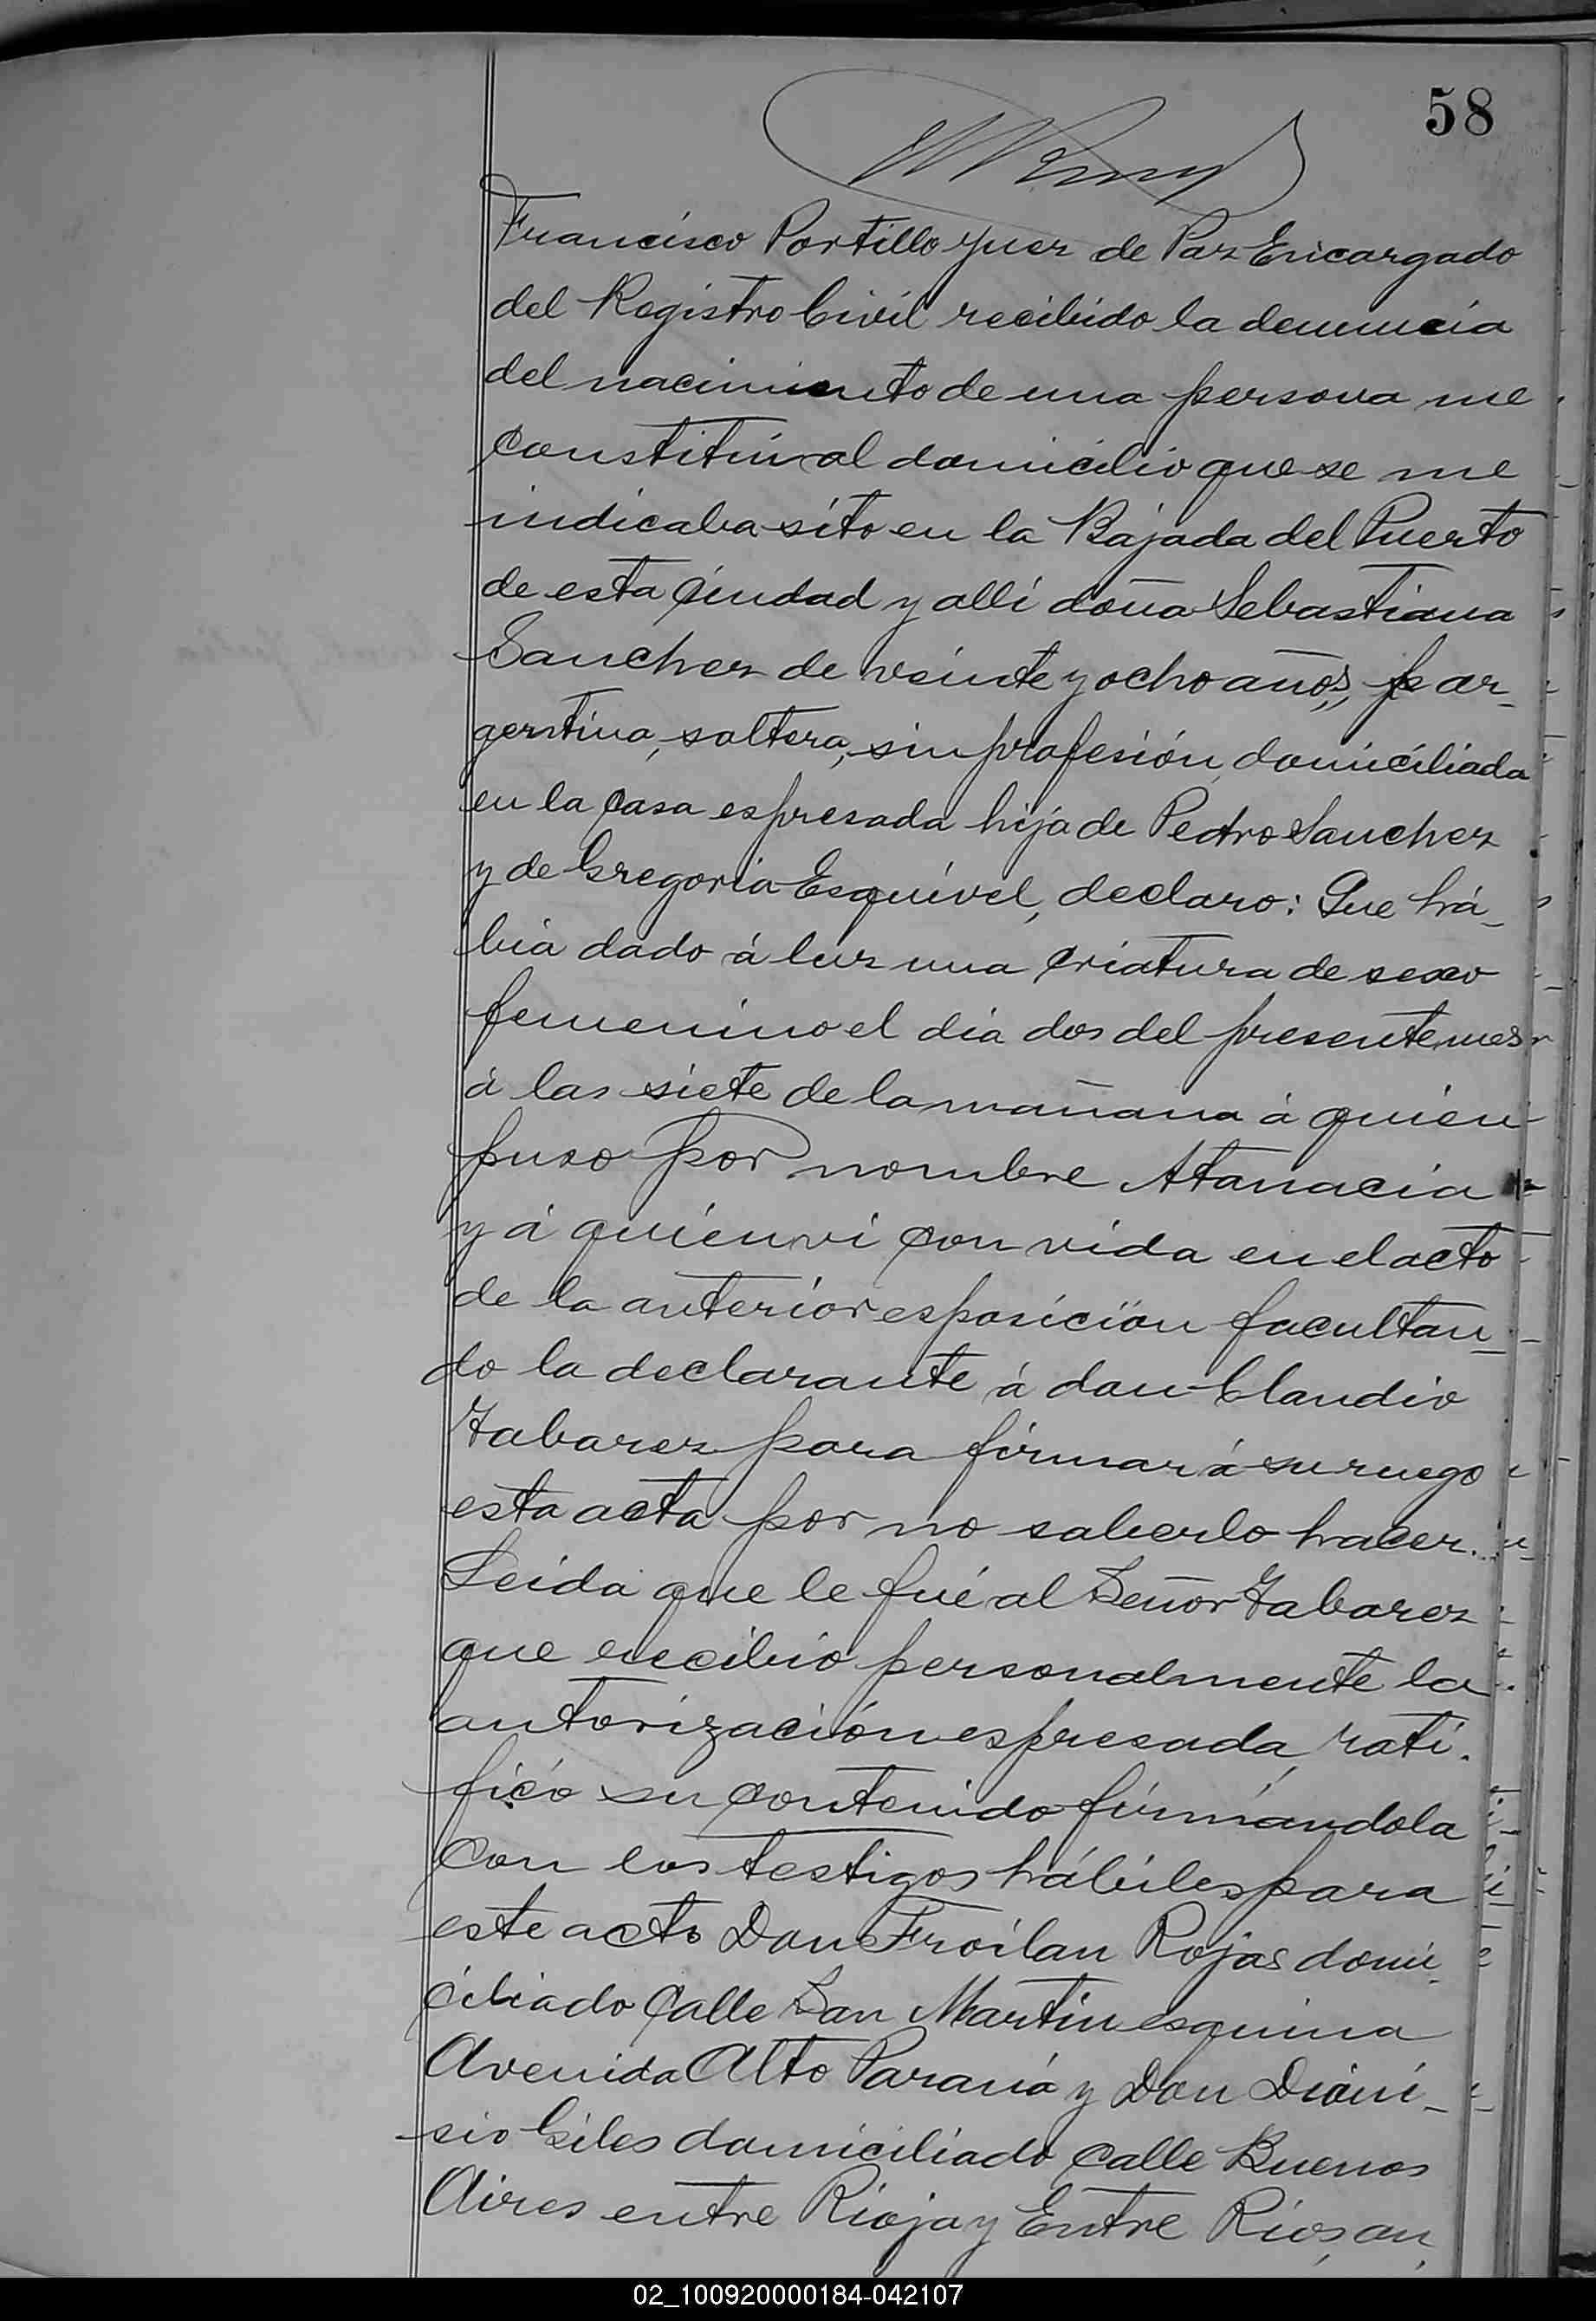 58
Francisco Portillo Juez de Paz Encargado
del Registro Civil recibido la denuncia
del nacimiento de una persona me
constituí al domicilio que se me
indicaba sito en la Bajada del Puerto
de esta Ciudad y allí doña Sebastiana
Sanchez de veinte y ocho años, ar_
gentina, soltera, sin profesión, domiciliada
en la casa espresada hija de Pedro Sanchez
y de Gregoria Esquivel, declaro: Que há_
bia dado á luz una criatura de sexo
femenino el dia dos del presente mes
á las siete de la mañana á quien
puso por nombre Atanacia
y á quien vi con vida en el acto
de la anterior esposición facultan_
do la declarante á don Claudio
Tabarez para firmar á su ruego
esta acta por no saberlo hacer.
Leida que le fué al Señor Tabarez
que recibió personalmente la
autorización espresada, rati_
ficó su contenido firmándola
con los testigos hábiles para
este acto Don Froilan Rojas domi_
ciliado Calle San Martin esquina
Avenida Alto Paraná y Don Dioni_
sio Giles domiciliado calle Buenos
Aires entre Rioja y Entre Rios, an
02_100920000184-042107